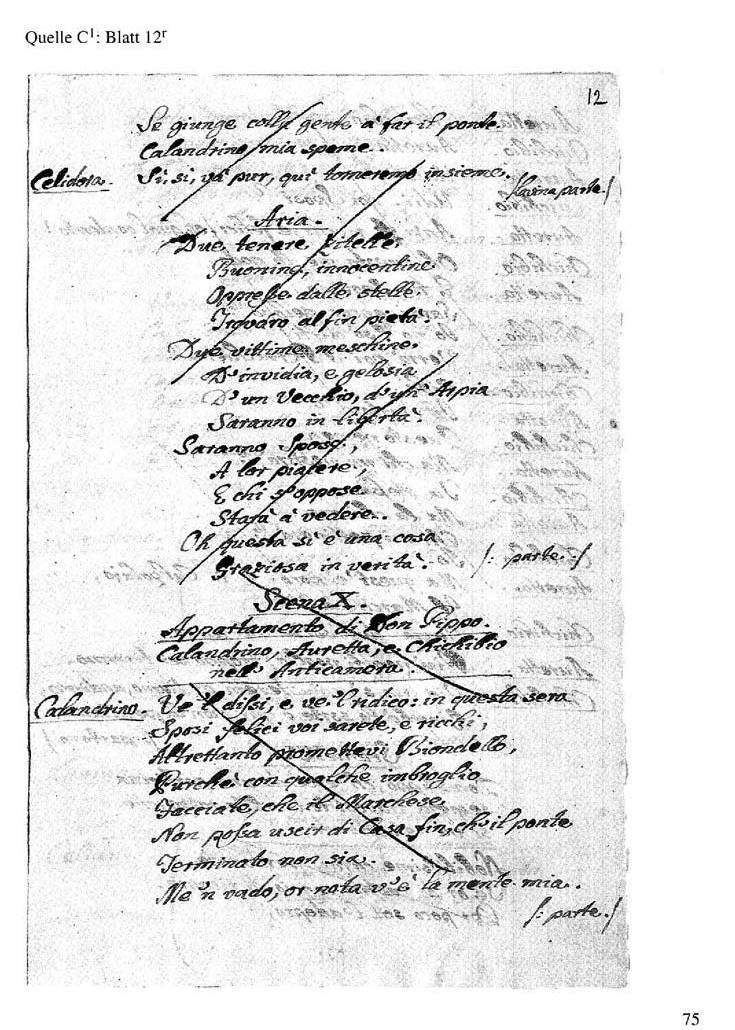 Quelle C¹: Blatt 12ʳ
12
Se giunge colla gente à far il ponte.
Calandrino mia speme.
Celidora. Sì, sì, và pur, quì torneremo insieme.
/Lavina parte./
Aria.
Due tenere Zitelle.
Buonine, innocentine
Oppresse dalle stelle.
Trovâro alfin pietà.
Due vittime meschine.
D'invidia, e gelosia
D'un Vecchio, d'un' Arpia
Saranno in libertà.
Saranno Spose,
A lor piacere,
E chi s'oppose
Starà à vedere..
Oh questa sì è una cosa
Graziosa in verità. /: parte :/
Scena X.
Appartamento di Don Pippo.
Calandrino, Auretta, e Chichibio
nell' Anticamera.
Calandrino. Ve 'l dissi, e ve 'l ridico: in questa sera
Sposi felici voi sarete, e ricchi;
Altrettanto promettevi Biondello,
Purchè con qualche imbroglio
Facciate, che il Marchese
Non possa uscir di Casa fin, ch' il ponte
Terminato non sia.
Me 'n vado, or nota v'è la mente mia..
/: parte./
75